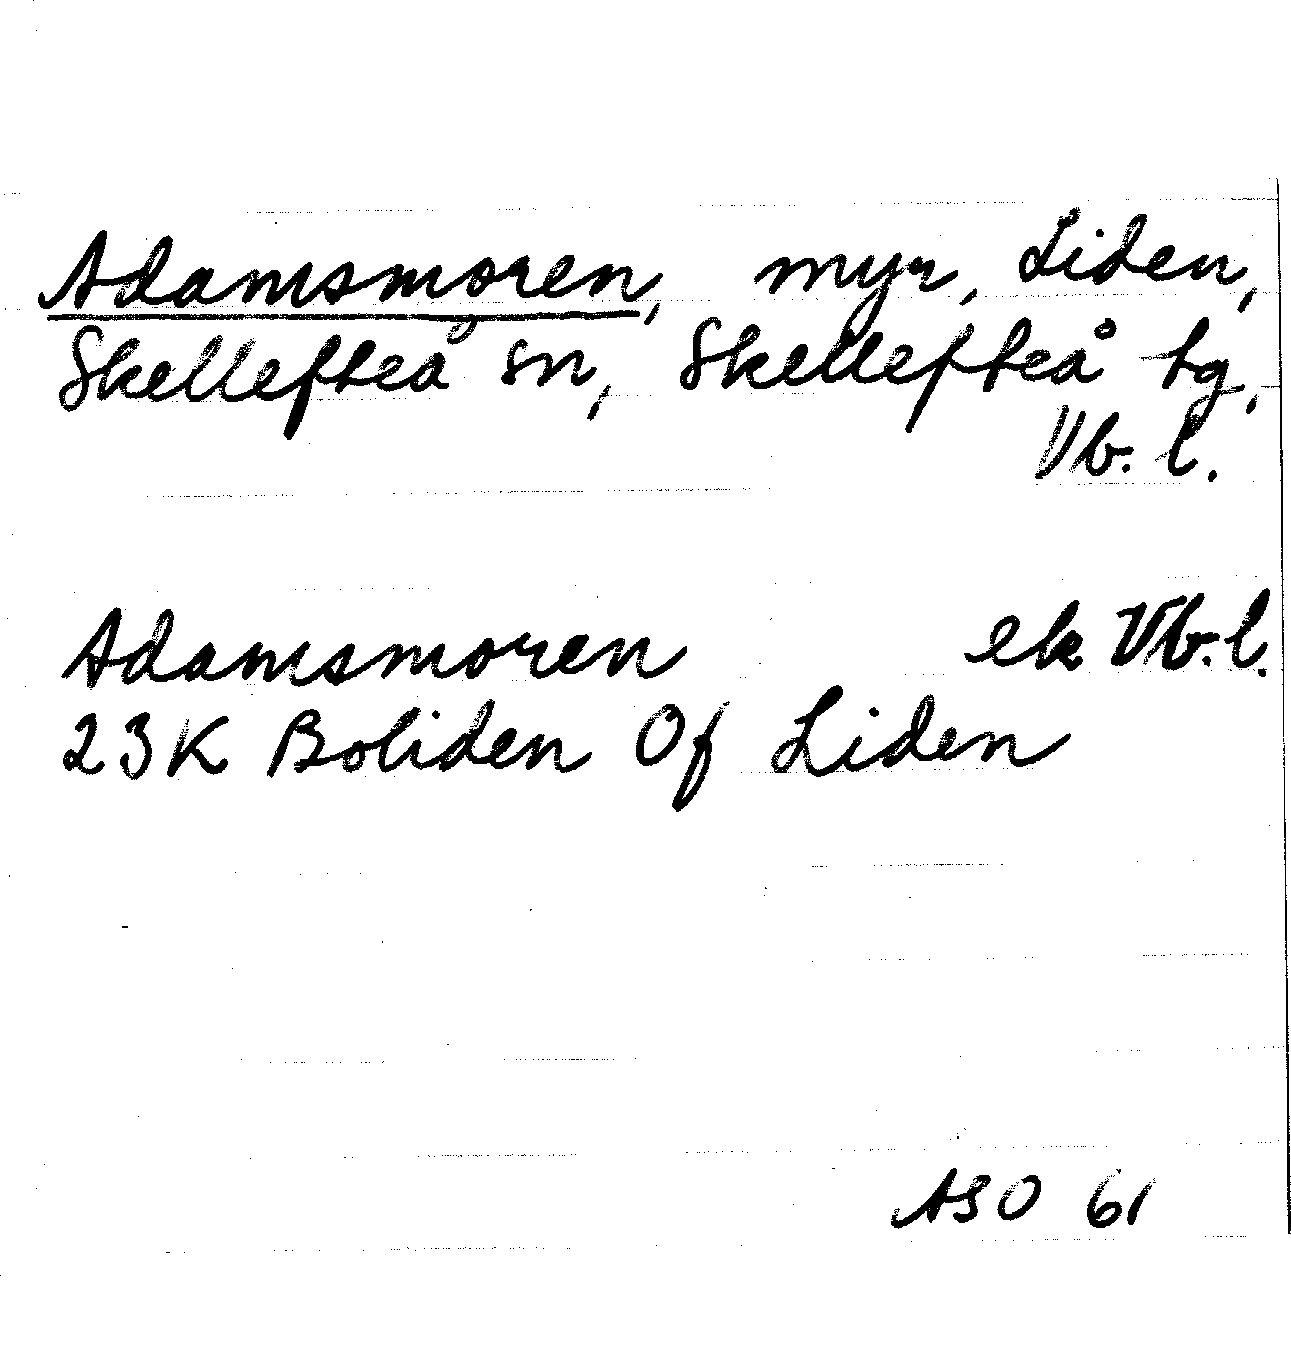 Adamsmoren, myr, Liden,
Skellefteå sn, Skellefteå tg,
Vb. l.
Adamsmoren ek Vb. l.
23K Boliden Of Liden
ASO 61